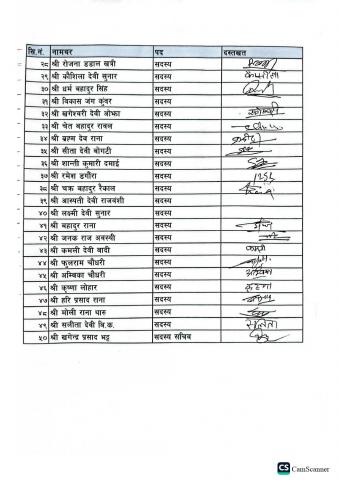 सि.नं. नामथर पद दस्तखत
२८ श्री रोजना डडाल खत्री सदस्य
२९ श्री कौशिला देवी सुनार सदस्य
३० श्री धर्म बहादुर सिंह सदस्य
३१ श्री विकास जंग कुंवर सदस्य
३२ श्री खगेश्वरी देवी ओझा सदस्य
३३ श्री चेत बहादुर रावल सदस्य
३४ श्री ब्रम्ह देव राना सदस्य
३५ श्री सीता देवी बोगटी सदस्य
३६ श्री शान्ती कुमारी दमाई सदस्य
३७ श्री रमेश डगौरा सदस्य
३८ श्री चक्र बहादुर रैकाल सदस्य
३९ श्री आस्पती देवी राजवंशी सदस्य
४० श्री लक्ष्मी देवी सुनार सदस्य
४१ श्री बहादुर राना सदस्य
४२ श्री जनक राज अवस्थी सदस्य
४३ श्री कमली देवी वादी सदस्य
४४ श्री फुलराम चौधरी सदस्य
४५ श्री अम्बिका चौधरी सदस्य
४६ श्री कृष्णा लोहार सदस्य
४७ श्री हरि प्रसाद राना सदस्य
४८ श्री मोली राना थारु सदस्य
४९ श्री सजीता देवी वि.क. सदस्य
५० श्री खगेन्द्र प्रसाद भट्ट सदस्य सचिव
CS CamScanner